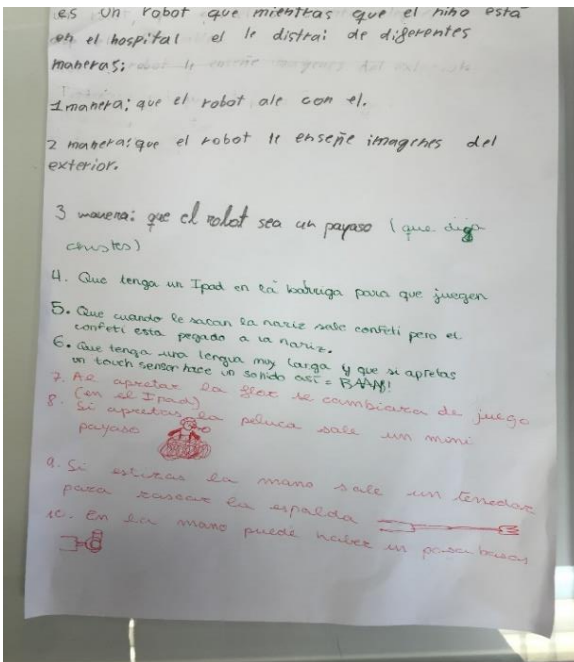 es un robot que mientras que el niño esta
en el hospital el le distrai de diferentes
maneras:
1 manera: que el robot ale con el.
2 manera: que el robot le enseñe imagenes del
exterior.
3 manera: que el robot sea un payaso (que diga
chustes)
4. Que tenga un Ipad en la barriga para que juegen
5. Que cuando le sacan la nariz sale confeti pero el
confeti esta pegado a la nariz.
6. Que tenga una lengua muy larga y que si apretas
un touch sensor hace un sonido así = BAAM!
7. Al apretar la flor se cambiara de juego
(en el Ipad)
8. Si apretas la peluca sale un mini
payaso
9. Si estiras la mano sale un tenedor
para rascar la espalda
10. En la mano puede haber un posa